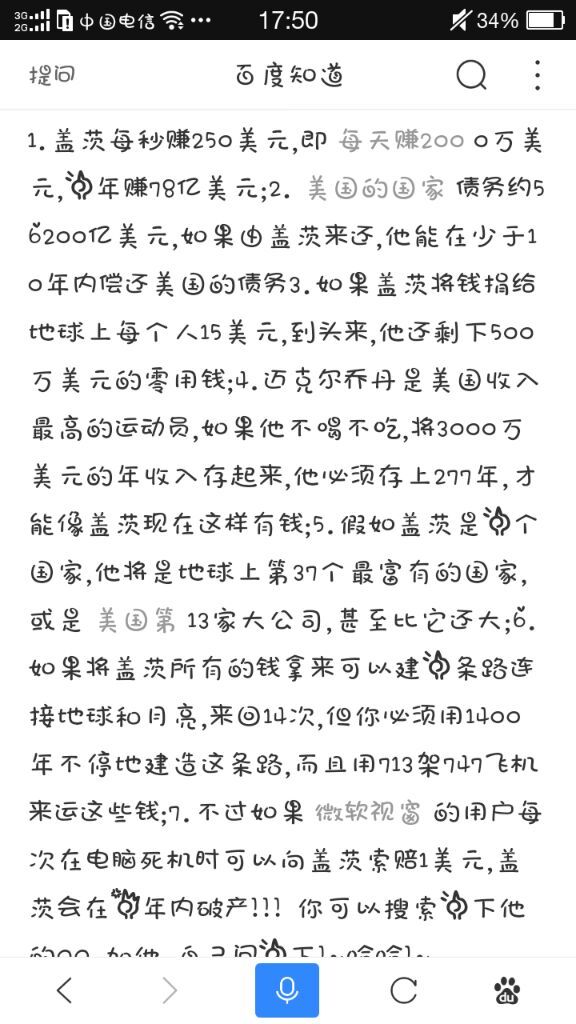 3G 2G 中国电信 ... 17:50 34%
提问 百度知道
1. 盖茨每秒赚250美元,即 每天赚200 0万美
元,一年赚78亿美元;2. 美国的国家 债务约5
6200亿美元,如果由盖茨来还,他能在少于1
0年内偿还美国的债务3.如果盖茨将钱捐给
地球上每个人15美元,到头来,他还剩下500
万美元的零用钱;4.迈克尔乔丹是美国收入
最高的运动员,如果他不喝不吃,将3000万
美元的年收入存起来,他必须存上277年,才
能像盖茨现在这样有钱;5.假如盖茨是一个
国家,他将是地球上第37个最富有的国家,
或是 美国第 13家大公司,甚至比它还大;6.
如果将盖茨所有的钱拿来可以建一条路连
接地球和月亮,来回14次,但你必须用1400
年不停地建造这条路,而且用713架747飞机
来运这些钱;7.不过如果 微软视窗 的用户每
次在电脑死机时可以向盖茨索赔1美元,盖
茨会在三年内破产!!! 你可以搜索一下他
du